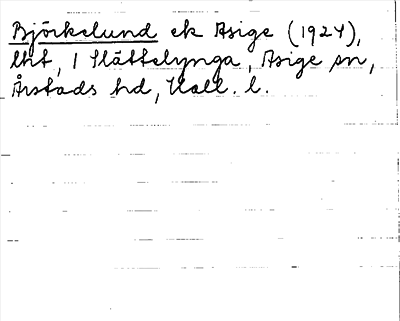 Björkelund ek Asige (1924),
lht, 1 Slättelynga, Asige sn,
Årstads hd, Hall. l.